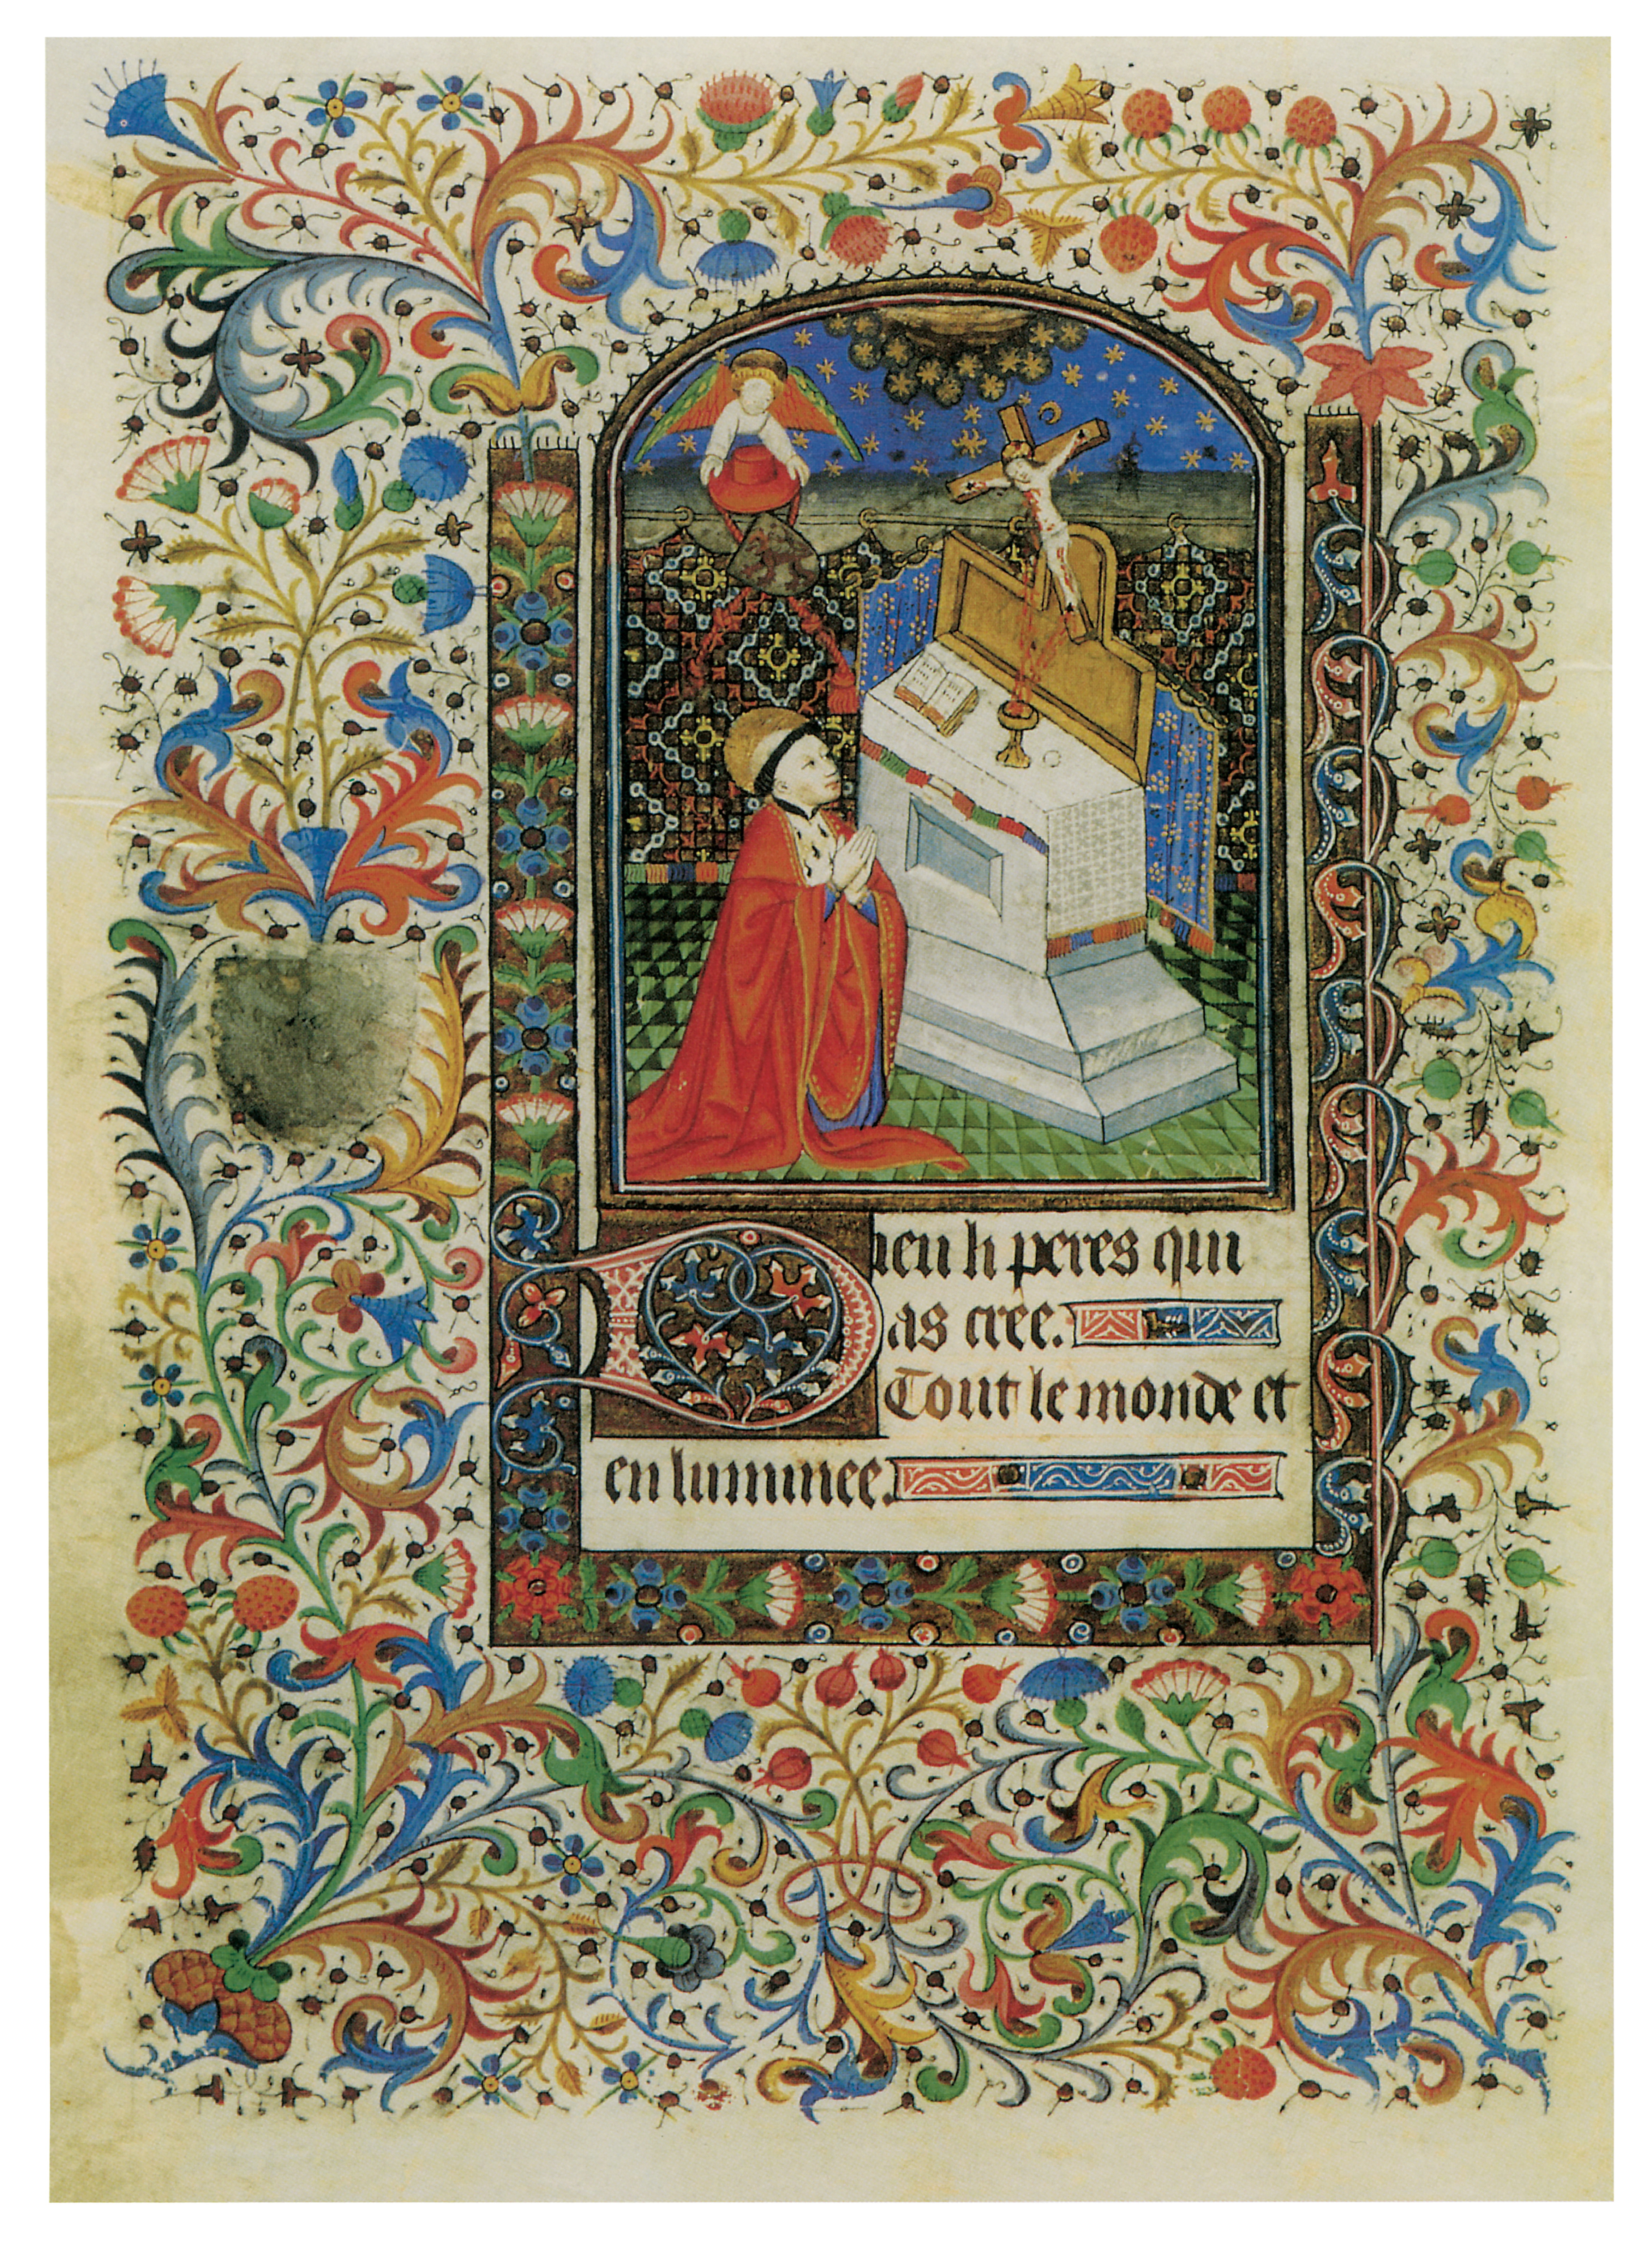 Dieu li peres qui
as cree.
Tout le monde et
en luminee.